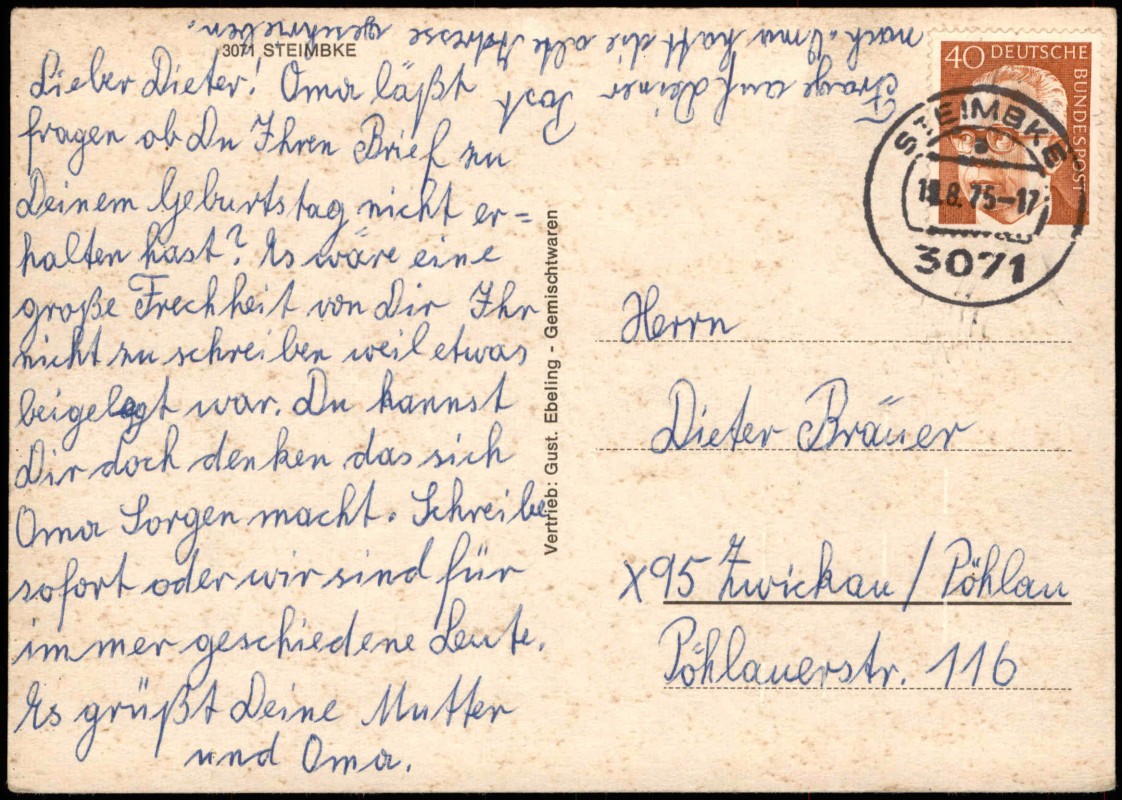 3071 STEIMBKE
Lieber Dieter! Oma läßt
fragen ob Du Ihren Brief zu
Deinem Geburtstag nicht er=
halten hast? Es wäre eine
große Frechheit von Dir Ihr
nicht zu schreiben weil etwas
beigelegt war. Du kannst
Dir doch denken das sich
Oma Sorgen macht. Schreibe
sofort oder wir sind für
immer geschiedene Leute.
Es grüßt Deine Mutter
und Oma.
Frage auf deiner Post
nach. Oma hatt die alte Adresse geschrieben.
Vertrieb: Gust. Ebeling - Gemischtwaren
40 DEUTSCHE
BUNDESPOST
STEIMBKE
.8.75-17
3071
Herrn
Dieter Bräuer
X95 Zwickau / Pöhlau
Pöhlauerstr. 116